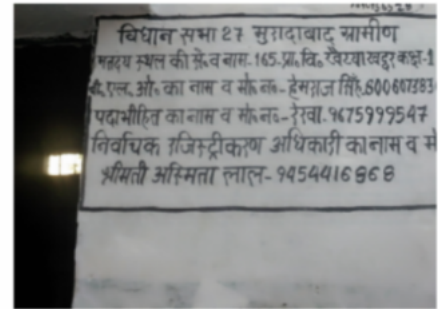 विधान सभा 27 मुरादाबाद ग्रामीण
मतदेय स्थल की सं. व नाम- 165-प्रा. वि. खैरखाखद्दर कक्ष-1
बी. एल. ओ. का नाम व मो. नं०- हेमराज सिंह.
पदाभीहित का नाम व मो. नं०- रेखा. 9675999547
निर्वाचक रजिस्ट्रीकरण अधिकारी का नाम व मो
श्रीमती अस्मिता लाल- 9454416868